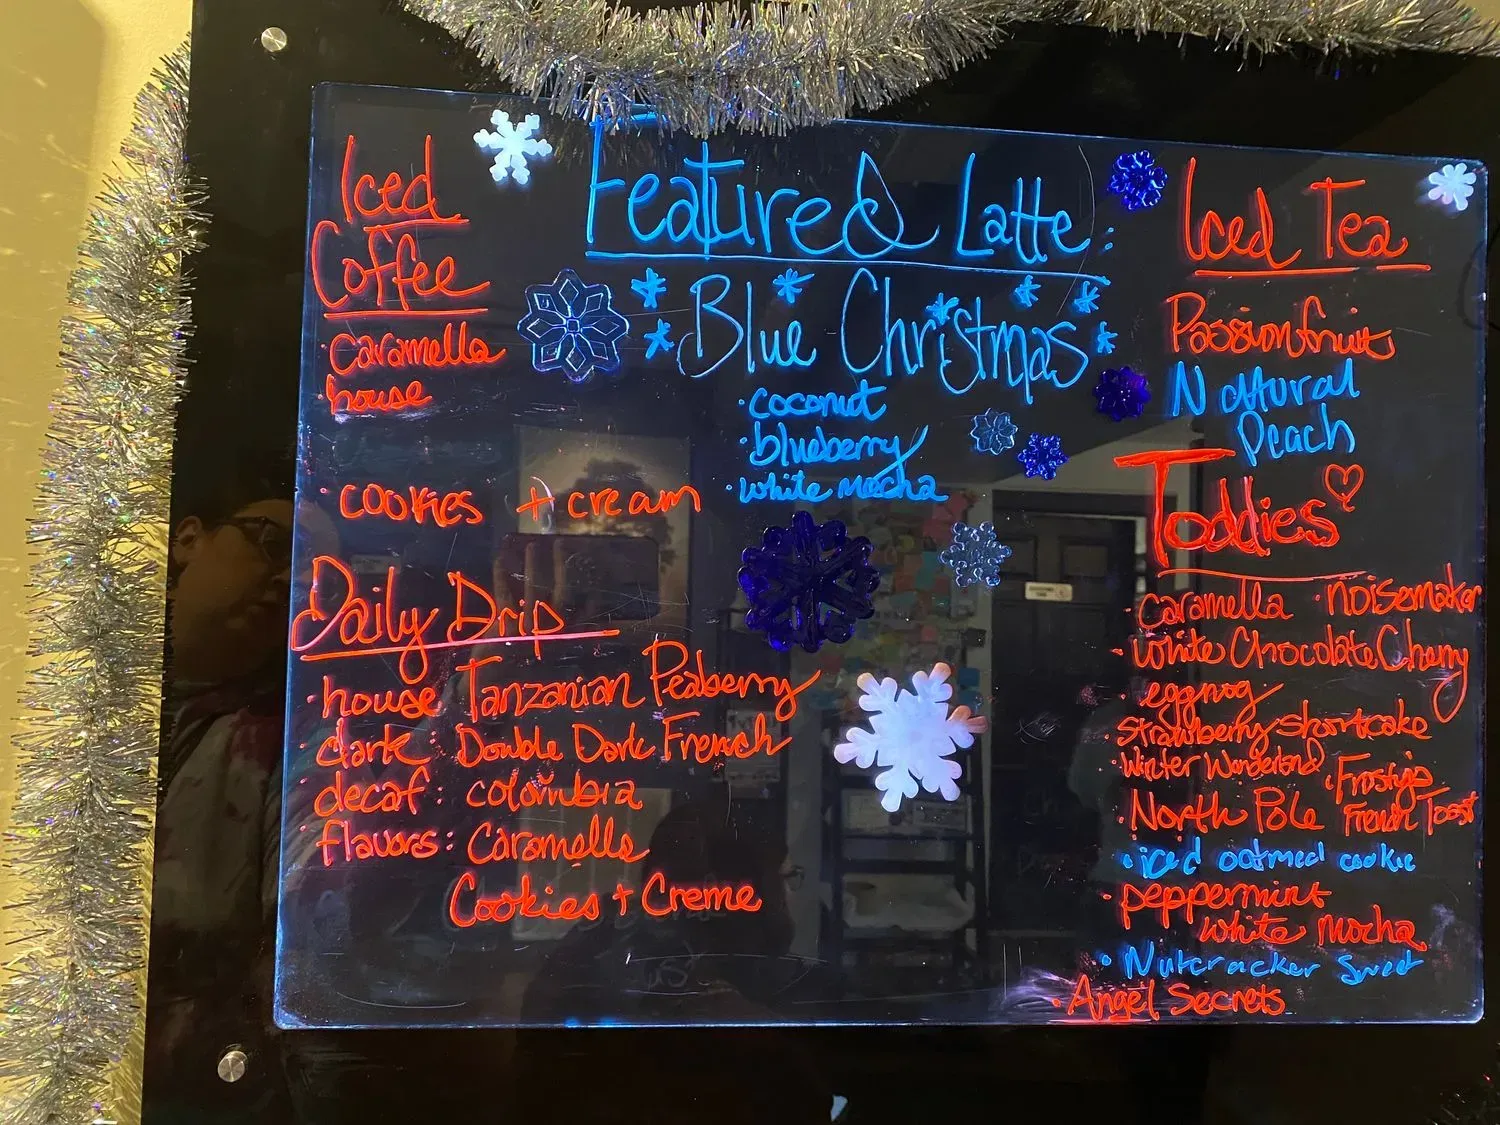 Iced
Coffee
· caramella
· house
· cookies + cream
Featured Latte:
Blue Christmas
· coconut
· blueberry
· white mocha
Iced Tea
Passionfruit
Natural
Peach
Toddies
· caramella · noisemaker
· White Chocolate Cherry
· eggnog
· Strawberry shortcake
· Winter Wonderland · Frosty's
· North Pole French Toast
· iced oatmeal cookie
· peppermint
white mocha
· Nutcracker Sweet
· Angel Secrets
Daily Drip
· house Tanzanian Peaberry
· dark: Double Dark French
· decaf: colombia
· flavors: Caramella
Cookies + Creme